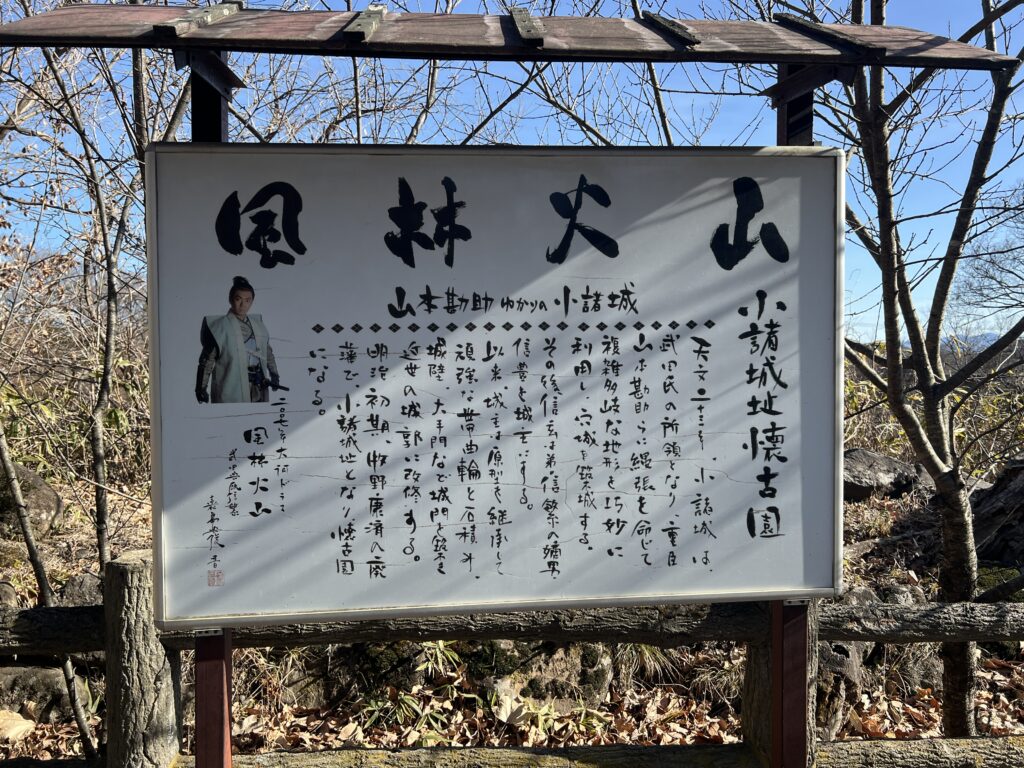 風林火山
小諸城址懐古園
山本勘助ゆかりの小諸城
天文二十三年、小諸城は、
武田氏の所領となり、重臣
山本勘助らに縄張を命じて
複雑多岐な地形を巧妙に
利用し、穴城を築城する。
その後信玄は弟・信繁の嫡男
信豊を城主にする。
以来、城主は原形を継承して
頑強な帯曲輪と石積み、
城陸、大手門など城門を築き
近世の城郭に改修する。
明治初期、牧野康済の廃
藩で、小諸城址となり懐古園
になる。
二〇〇七年大河ドラマ
風林火山
武田信繁